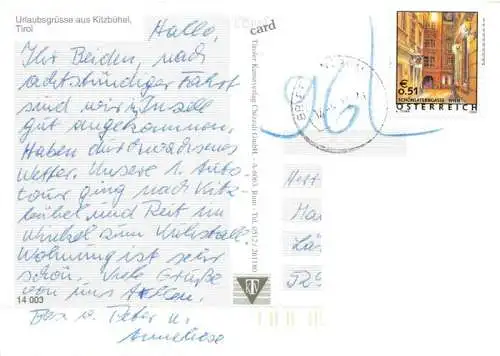 Urlaubsgrüsse aus Kitzbühel,
Tirol
Hallo,
Ihr Beiden, nach
achtstündiger Fahrt
sind wir in Zell
gut angekommen.
Haben durchwachsenes
Wetter. Unsere 1. Auto-
tour ging nach Kitz-
bühel und Reit im
Winkel zum
Wohnung ist sehr
schön. Viele Grüße
von uns Allen.
Peter u.
Anneliese
14 003
card
Tiroler Kunstverlag Chizzali GmbH. - A-6063 Rum - Tel. 0512 / 261180
€
0.51
SCHÖNLATERNGASSE · WIEN 1
ÖSTERREICH
BRIEF
96
Herr
52